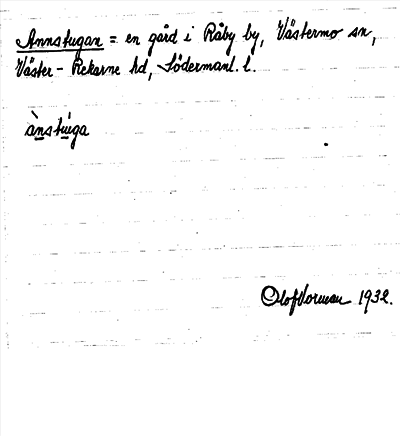 Annstugan = en gård i Råby by, Västermo sn,
Väster-Rekarne hd, Södermanl. l.
ànstùga
Olof Norman 1932.